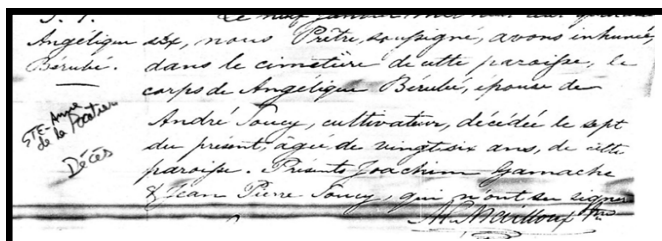 S. 7.
Angélique
Bérubé.
STE-Anne
de la Pocatière
Décès
Le neuf janvier, mil huit cent quarante
six, nous Prêtre, soussigné, avons inhumé,
dans le cimetière de cette paroisse, le
corps de Angélique Bérubé, épouse de
André Soucy, cultivateur, décédée le sept
du présent, agée de vingt six ans, de cette
paroisse. Présents Joachim Gamache
& Jean Pierre Soucy, qui n'ont su signer
Mailloux Ptre